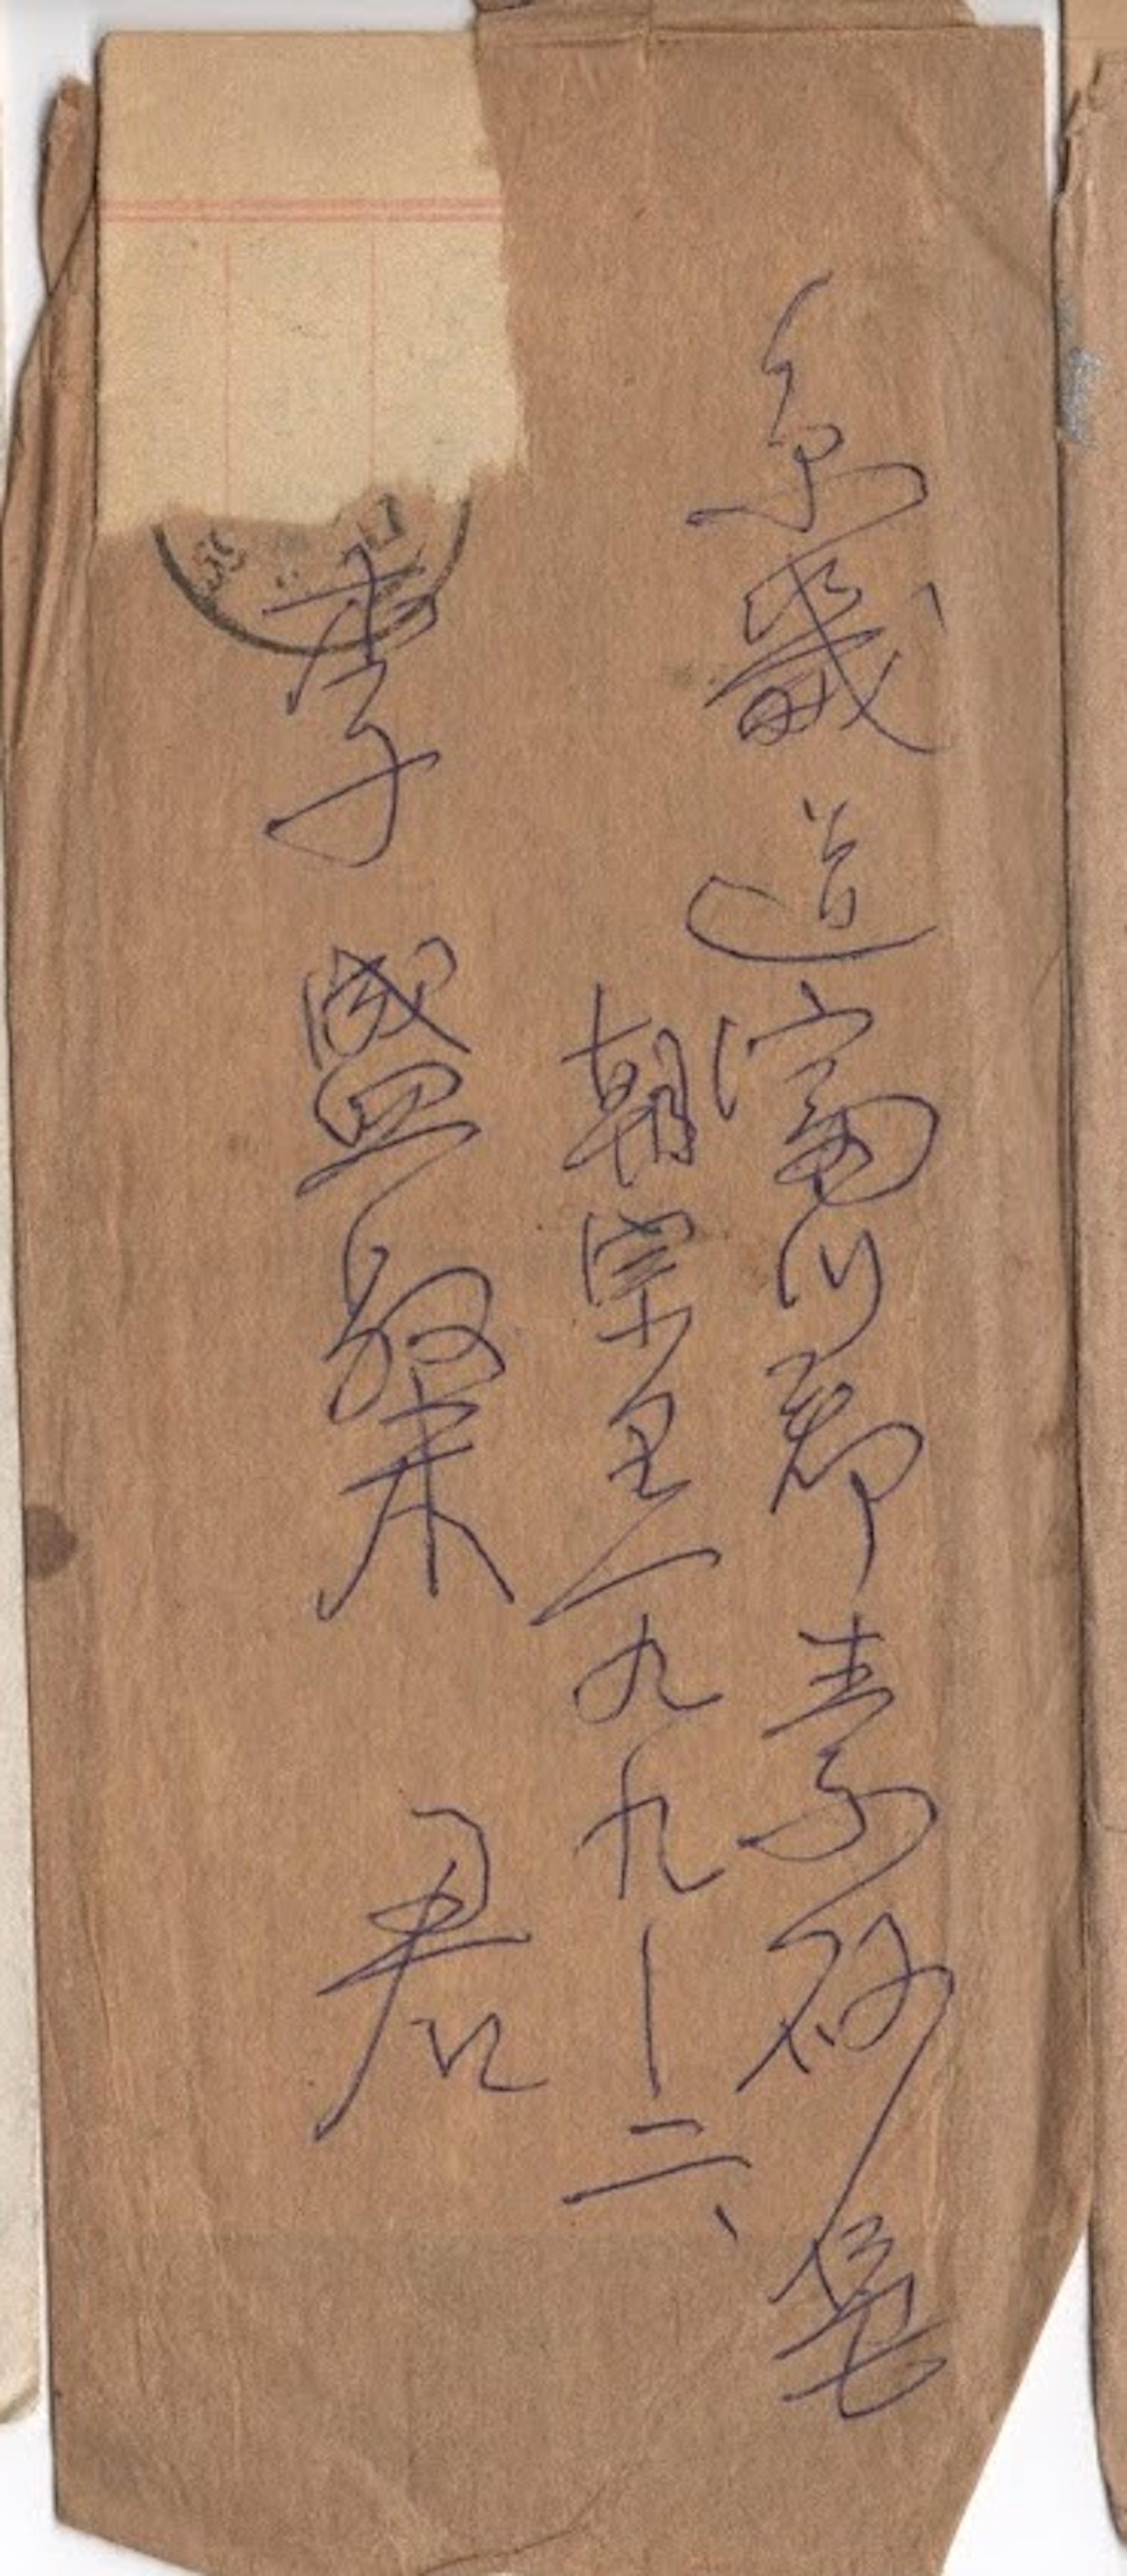 京畿道富川郡素砂邑
朝宗里一九九ー二
李盛 君